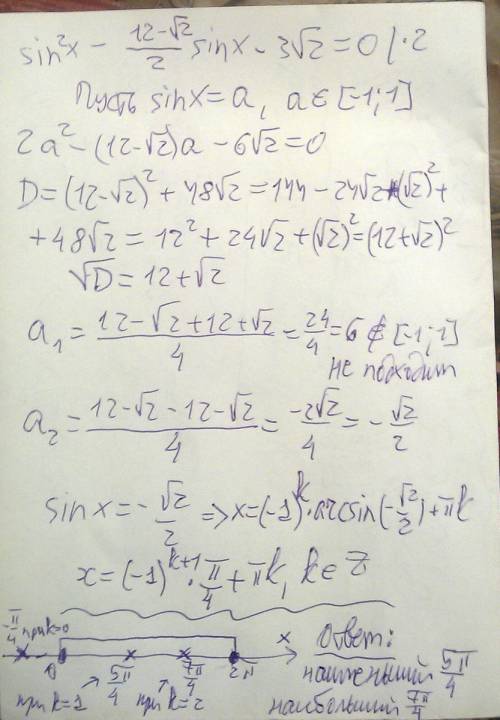 sin²x - (12-√2)/2 sinx - 3√2 = 0 |·2
Пусть sinx = a, a ∈ [-1;1]
2a² - (12-√2)a - 6√2 = 0
D = (12-√2)² + 48√2 = 144 - 24√2 + (√2)² +
+ 48√2 = 12² + 24√2 + (√2)² = (12+√2)²
√D = 12+√2
a₁ = (12-√2+12+√2)/4 = 24/4 = 6 ∉ [-1;1]
не подходит
a₂ = (12-√2-12-√2)/4 = -2√2/4 = -√2/2
sinx = -√2/2 => x = (-1)^k · arcsin(-√2/2) + πk
x = (-1)^(k+1) · π/4 + πk, k ∈ Z
-π/4 при k=0
0 5π/4 7π/4 2π x
при k=1 при k=2
Ответ:
наименьший 5π/4
наибольший 7π/4